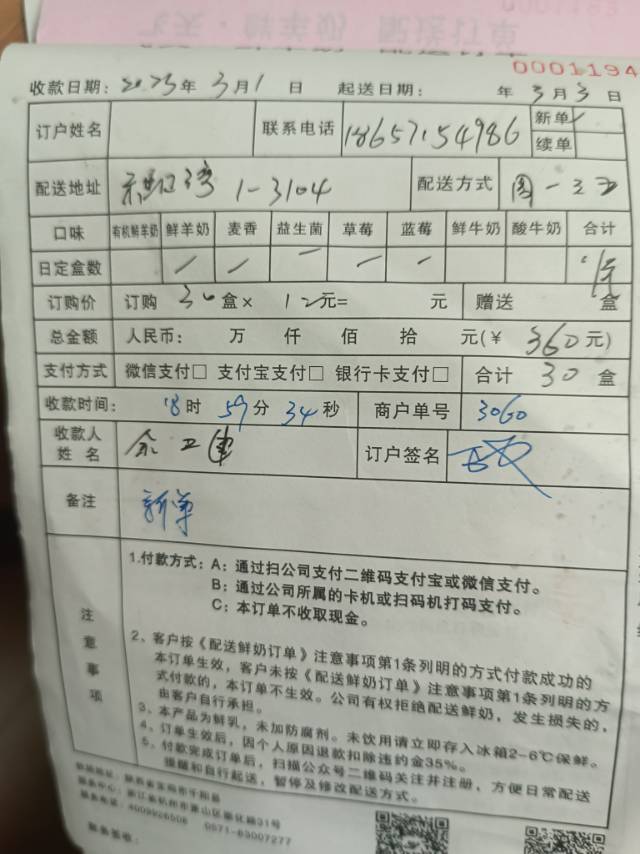 飞天·鲜羊奶 配送订单
0001193
0001194
收款日期：2025年 3月1日 起送日期： 年 3月3日
订户姓名 联系电话 18657154986 新单
续单
配送地址 1-3104 配送方式 周一三五
口味 有机鲜羊奶 鲜羊奶 麦香 益生菌 草莓 蓝莓 鲜牛奶 酸牛奶 合计
日定盒数 / / / / /
订购价 订购 30盒× 12元= 元 赠送 盒
总金额 人民币： 万 仟 佰 拾 元(￥ 360元)
支付方式 微信支付□ 支付宝支付□ 银行卡支付□ 合计 30 盒
收款时间： 18时 59分 34秒 商户单号 3060
收款人姓名 余卫建 订户签名
备注 新单
注意事项
1.付款方式：A：通过扫公司支付二维码支付宝或微信支付。
B：通过公司所属的卡机或扫码机打码支付。
C：本订单不收取现金。
2、客户按《配送鲜奶订单》注意事项第1条列明的方式付款成功的
本订单生效，客户未按《配送鲜奶订单》注意事项第1条列明的方
式付款的，本订单不生效。公司有权拒绝配送鲜奶，发生损失的，
由客户自行承担。
3、本产品为鲜乳，未加防腐剂。未饮用请立即存入冰箱2-6℃保鲜。
4、订单生效后，因个人原因退款扣除违约金35%。
5、付款完成订单后，扫描公众号二维码关注并注册，方便日常配送
提醒和自行起送，暂停及修改配送方式。
服务电话：4009926508 0571-83007277
服务签名：